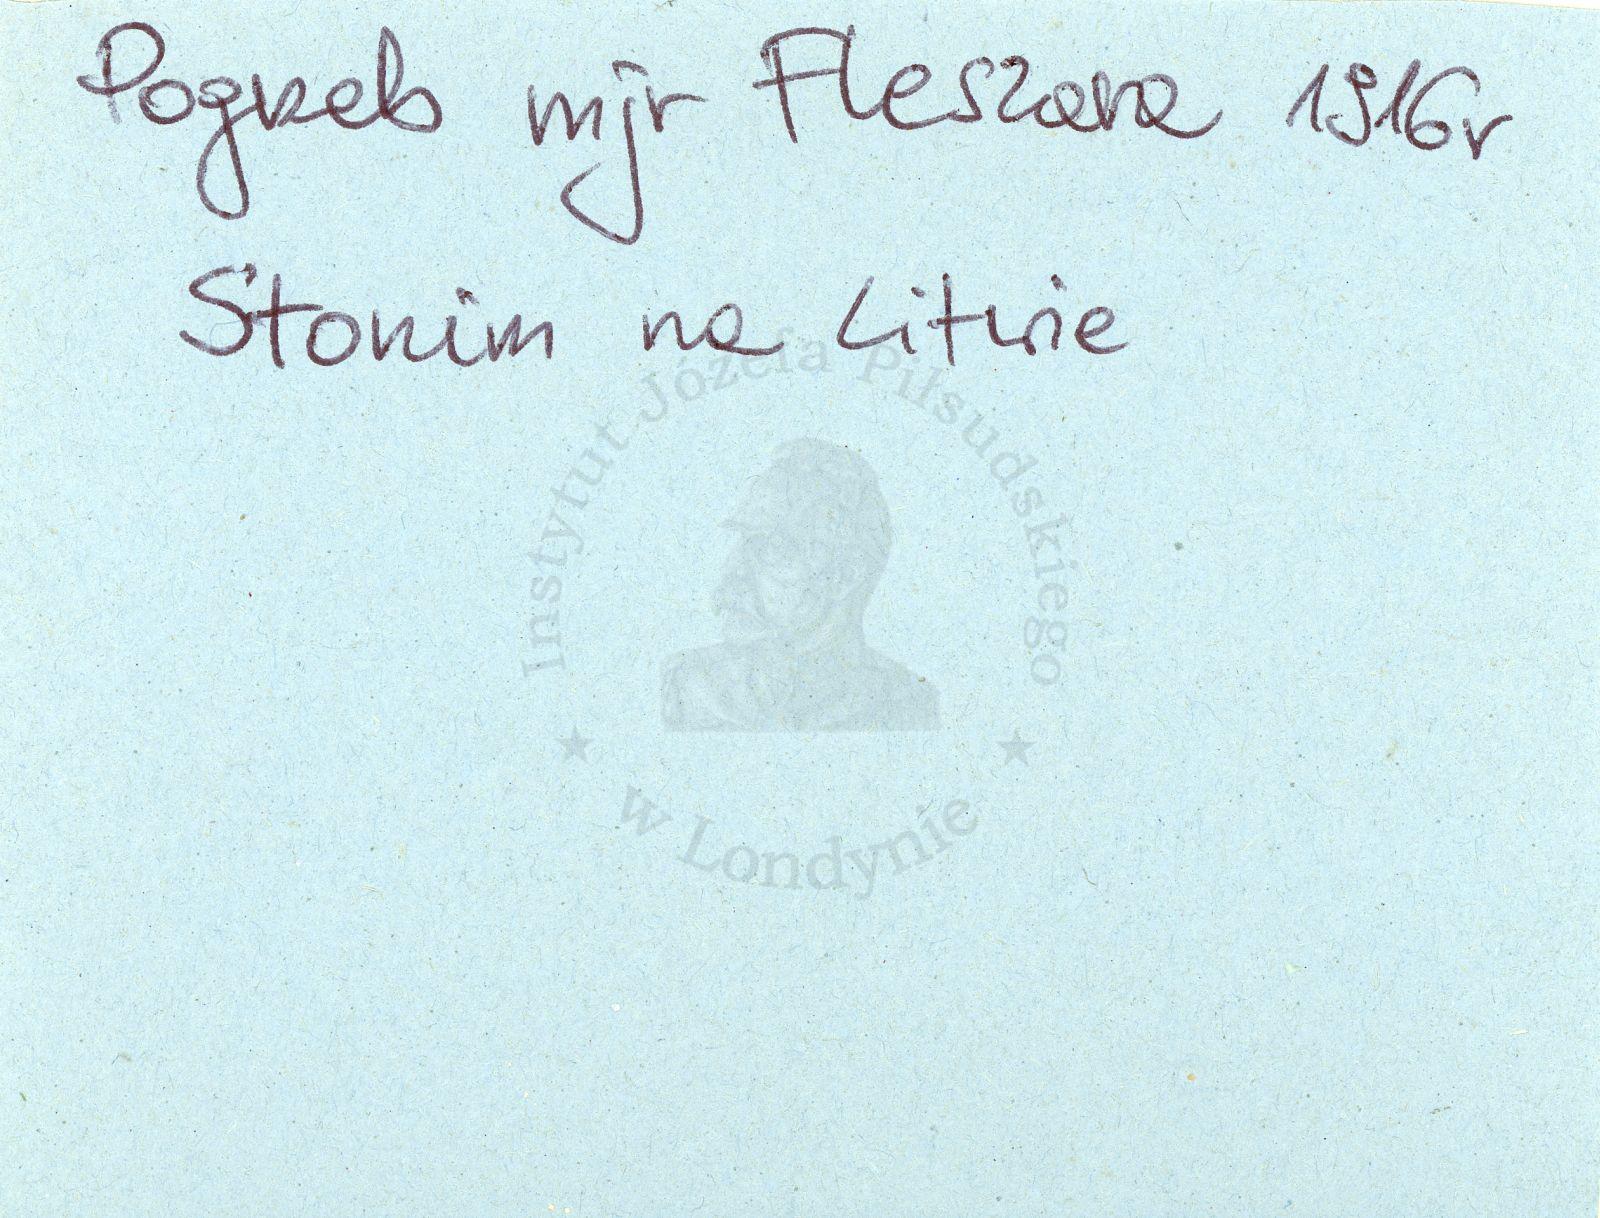 Pogrzeb mjr Fleszara 1916r
Słonim na Litwie
Instytut Józefa Piłsudskiego
w Londynie